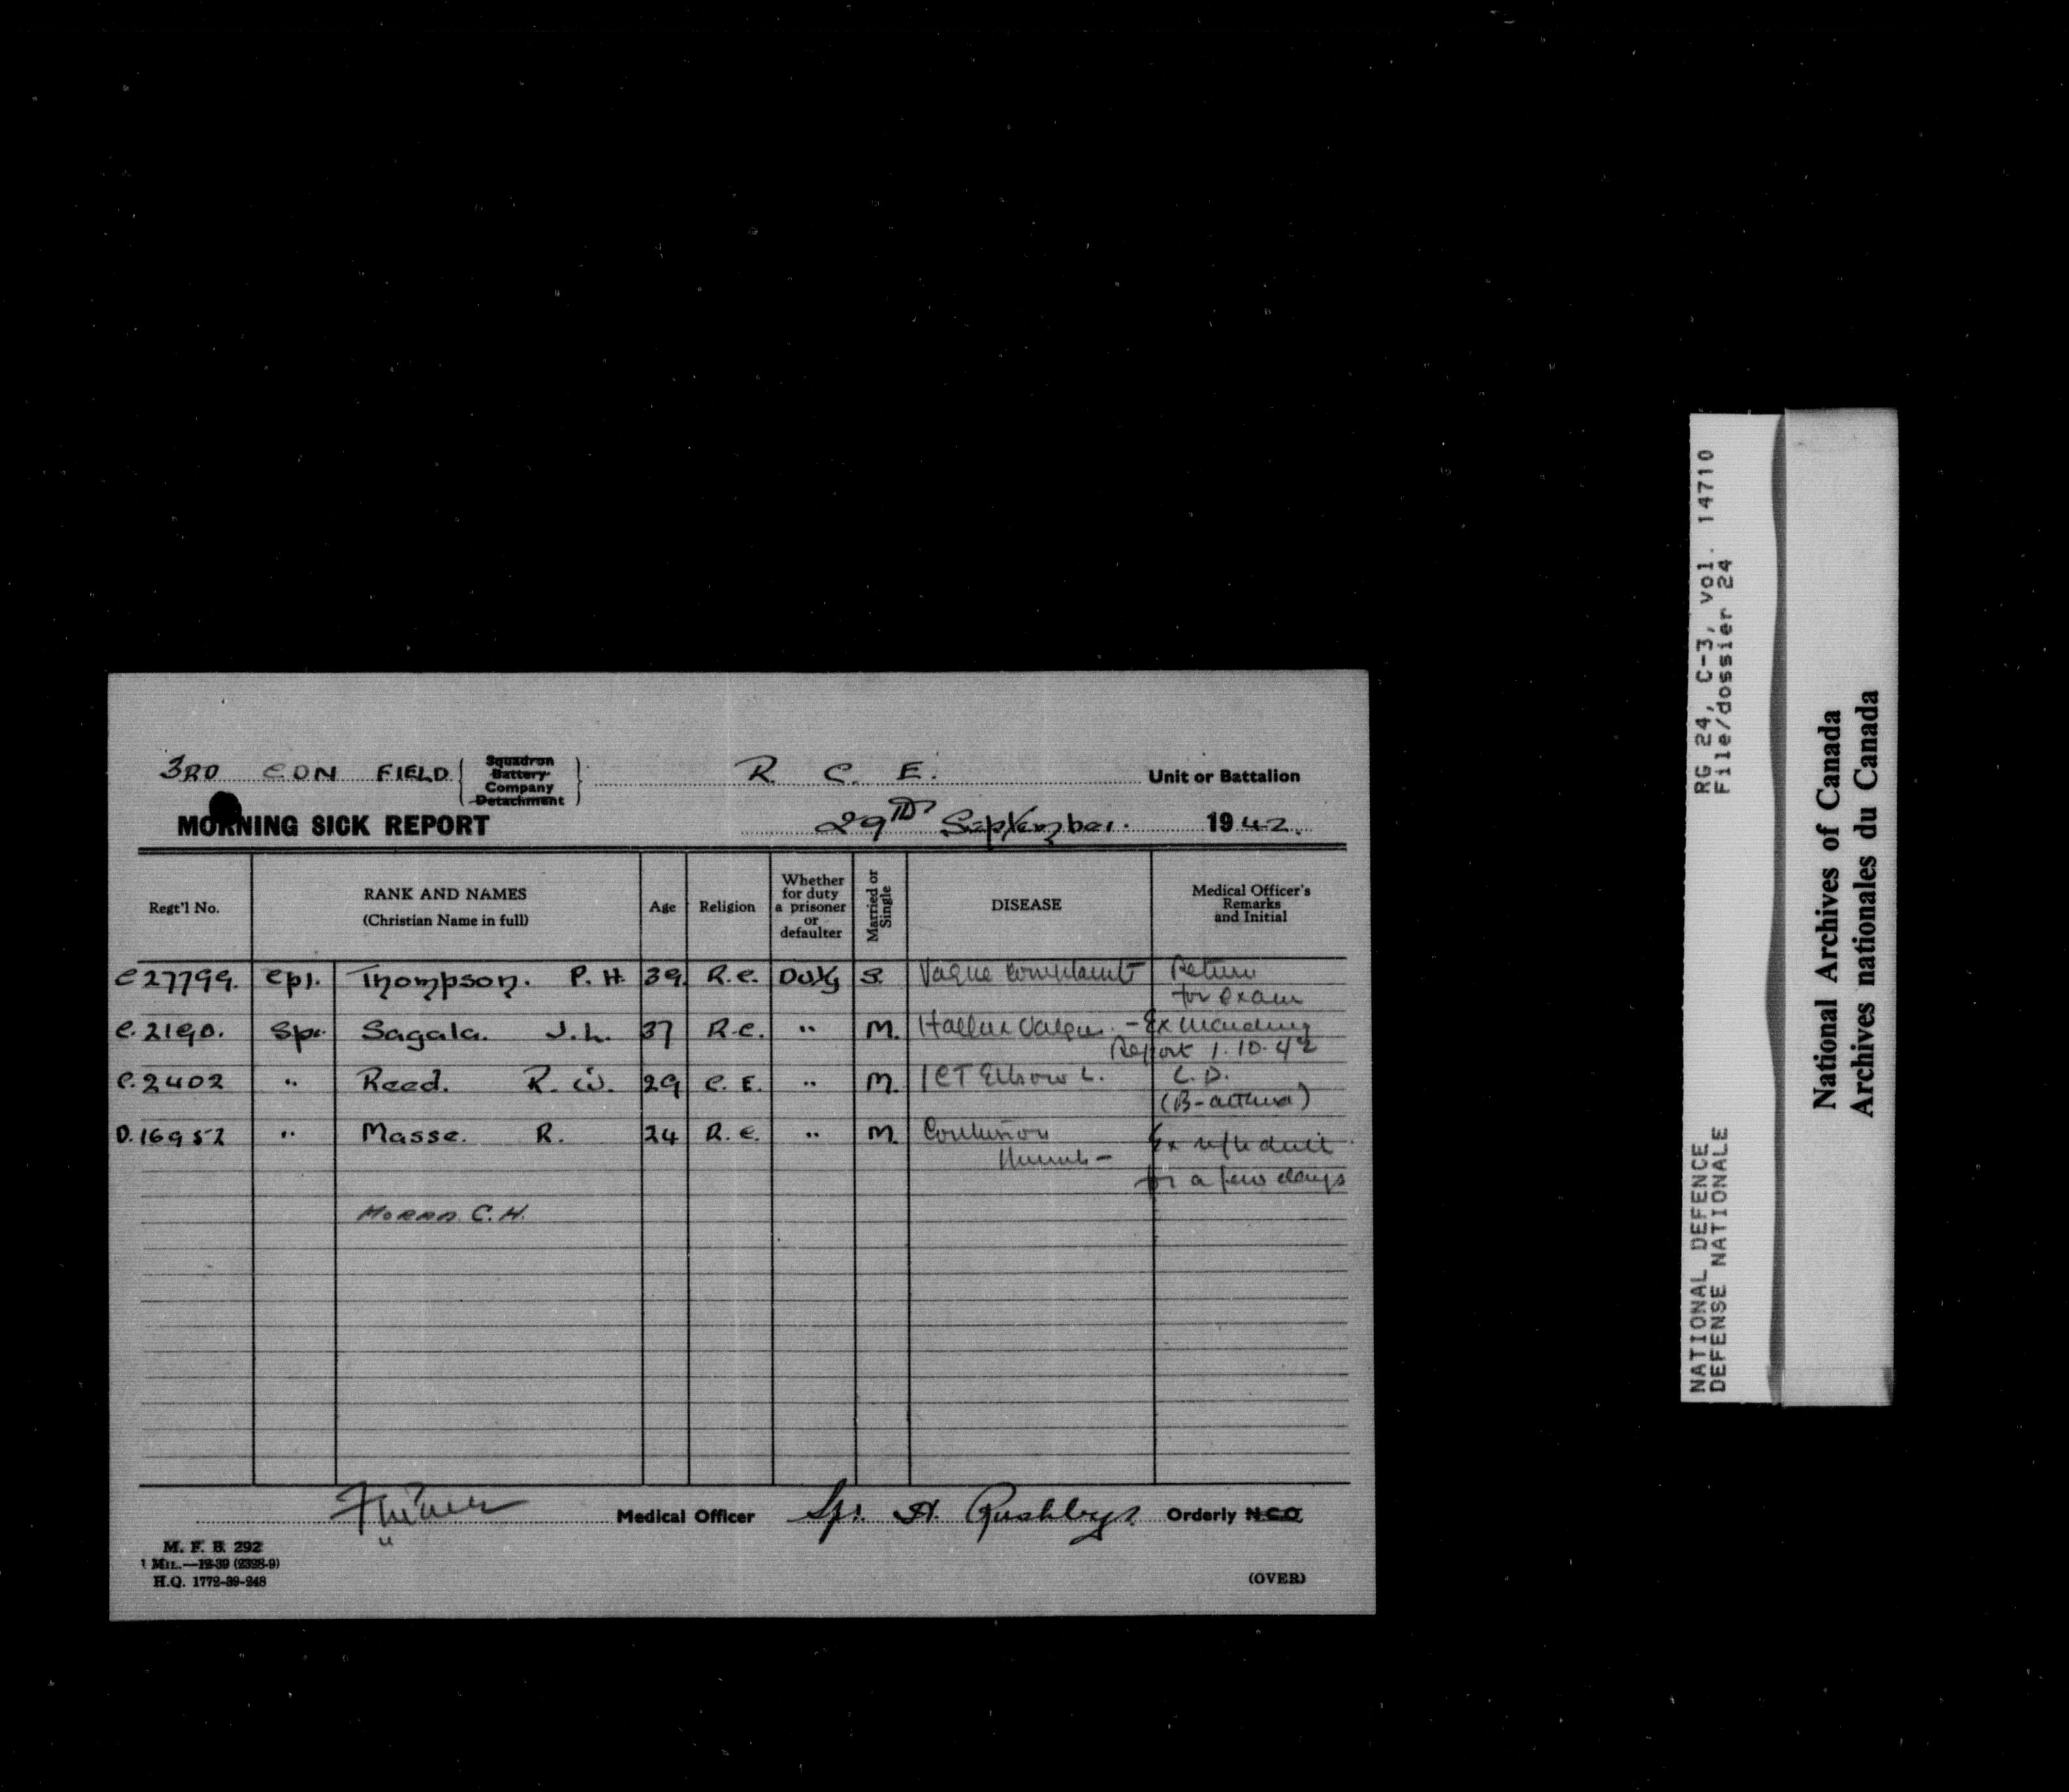 3RD CDN FIELD { Squadron Battery Company Detachment } R. C. E. Unit or Battalion
MORNING SICK REPORT 29TH September. 1942.
Regt'l No. RANK AND NAMES (Christian Name in full) Age Religion Whether for duty a prisoner or defaulter Married or Single DISEASE Medical Officer's Remarks and Initial
C 27799. Cpl. Thompson. P. H. 39. R.C. Duty S. Vague complaint Return
for exam
C. 2190. Spr. Sagala. J. L. 37 R.C. " M. Hallux Valgus. - Ex marching
Report 1.10.42
C. 2402 " Reed. R. W. 29 C. E. " M. ICT Elbow L. L. D.
D. 16952 " Masse. R. 24 R.C. " M. Contusion Ex
for a few days
Moran C. H.
Medical Officer Spr. H. Rushby Orderly N.C.O.
M. F. B. 292
1 MIL.—12-39 (2328-9)
H.Q. 1772-39-248
(OVER)
NATIONAL DEFENCE RG 24, C-3, vol. 14710
DEFENSE NATIONALE File/dossier 24
National Archives of Canada
Archives nationales du Canada